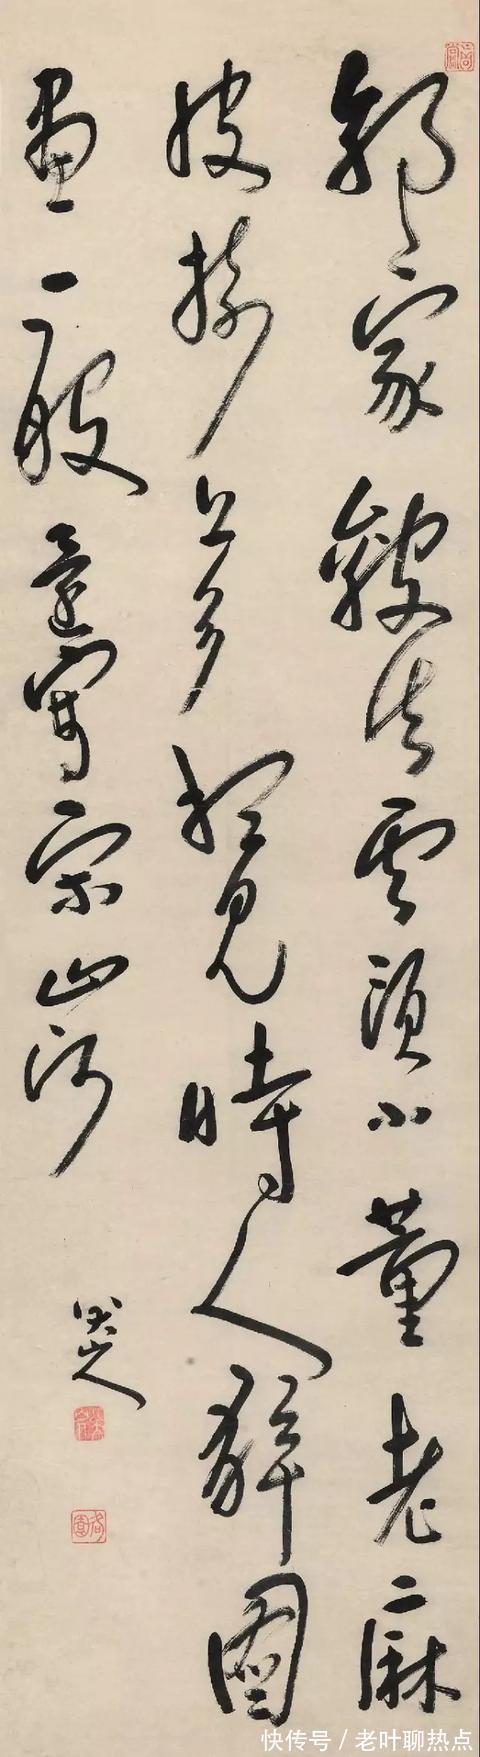 郭家皴法雲頭小董老麻
皮樹上多想見時人解圖
畫一般還寫宋山河
八大山人
快传号/老叶聊热点